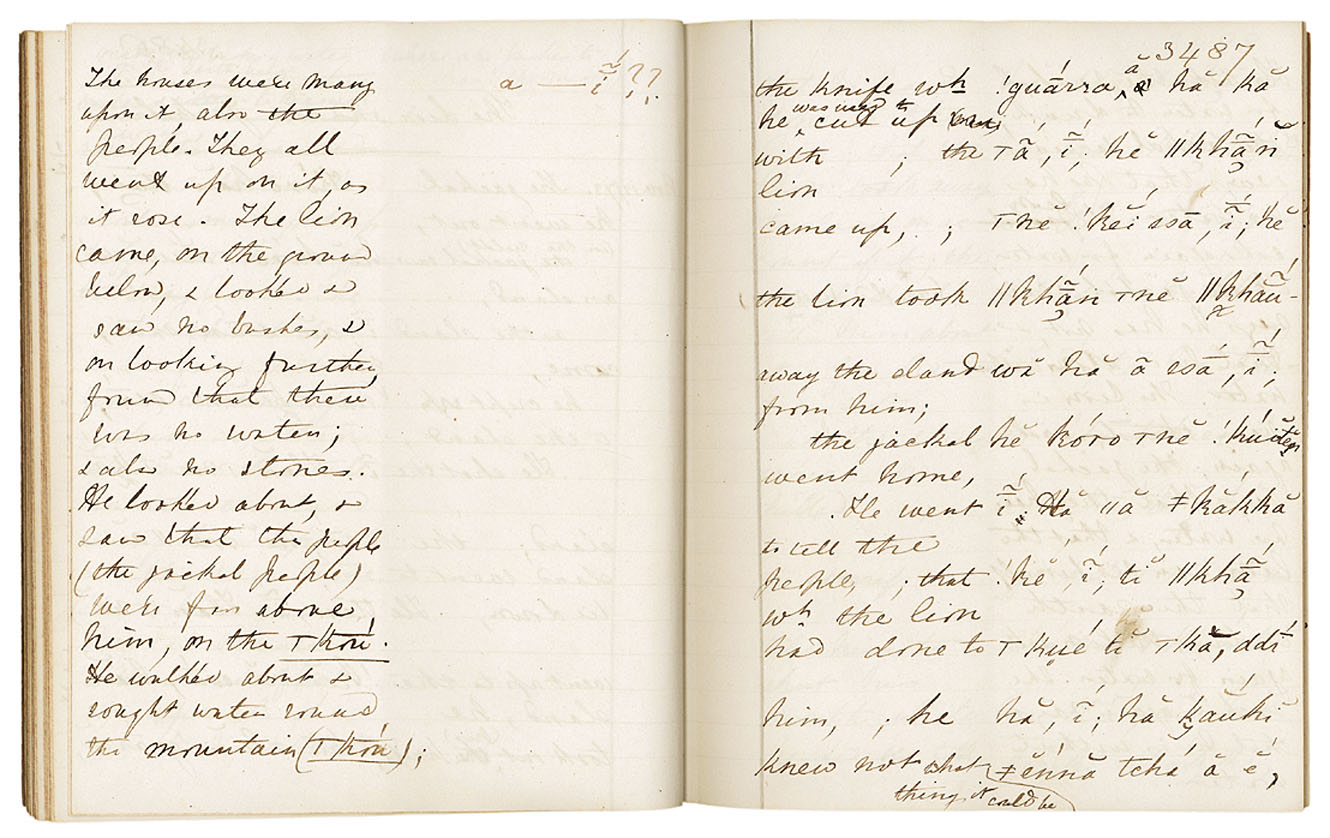 The houses were many
upon it, also the
people. They all
went up on it, as
it rose. The lion
came, on the ground
below, & looked &
saw no bushes, &
on looking further,
found that there
was no water;
& also no stones.
He looked about, &
saw that the people
(the jackal people)
were far above
him, on the ⊤kóu.
He walked about &
sought water round
the mountain (⊤kóu);
a — ĩ́ ??
3487
the knife wh !guárra, ā hă kă
he was used to cut up
with ; the ⊤ã́, ĩ́; hĕ ǁkhã́ŭ
lion
came up, ; ⊤nĕ !kĕí ssā, ĩ́; hĕ
the lion took ǁkhã́n ⊤nĕ ǁkhãu-
away the eland wă hă ā ssā́, ĩ́;
from him;
the jackal hĕ kóro ⊤nĕ !kúĭtĕn
went home,
He went ĩ́. Hă ǁă ǂkăkkă
to tell the
people, ; that hĕ ĩ́; tĭ ǁkhã́
wh the lion
had done to ⊤kué tĭ ⊤kă, ddí
him, ; he hă, ĩ́; hă káuki
knew not what ǂĕnnă tchá ā ĕ́,
thing it could be